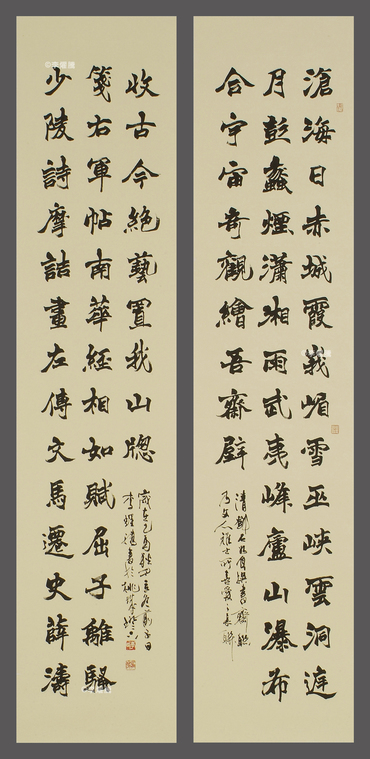 滄海日赤城霞峩嵋雪巫峽雲洞庭
月彭蠡煙瀟湘雨武夷峰廬山瀑布
合宇宙奇觀繪吾齋壁
清鄧石如自題書齋聯
乃文人雅士所喜愛之長聯
少陵詩摩詰畫左傳文馬遷史薛濤
箋右軍帖南華經相如賦屈子離騷
收古今絕藝置我山牕